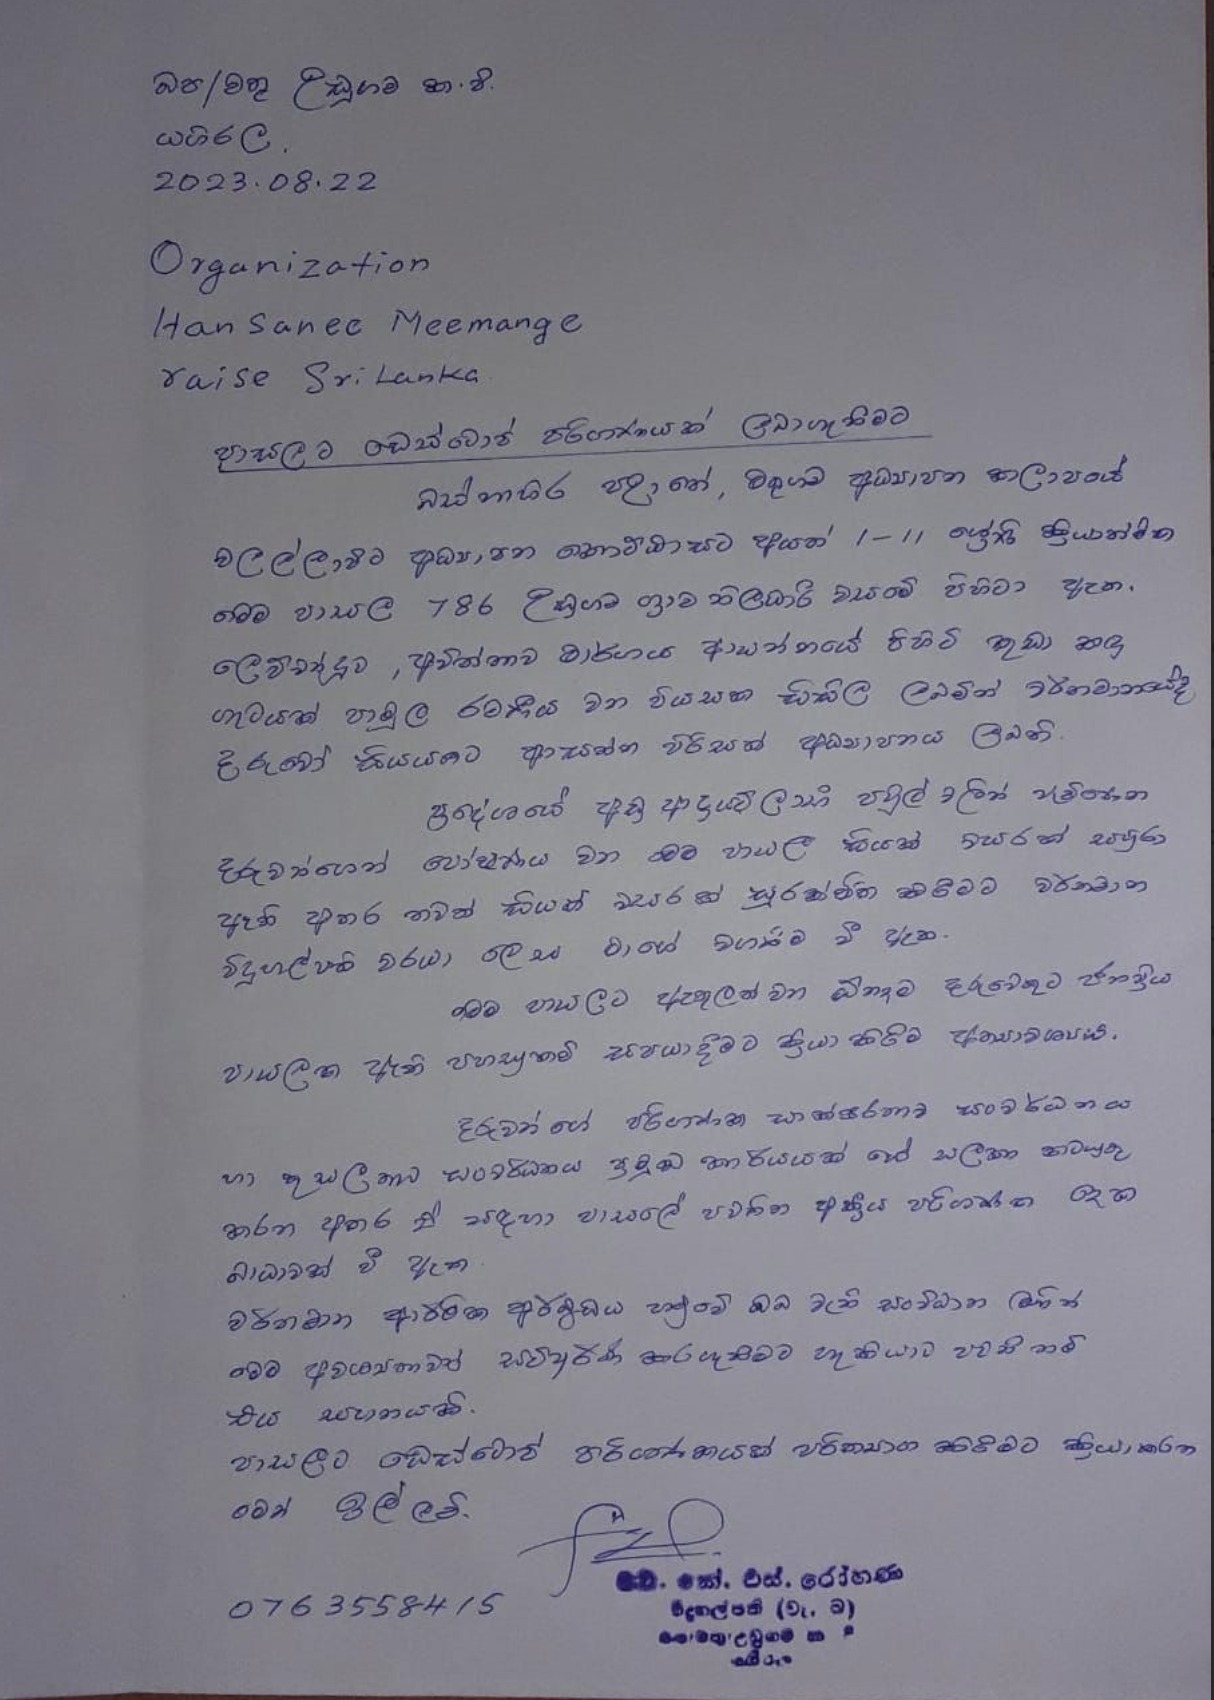 බප/මතු උඩුගම ක.වි.
යහිරල.
2023.08.22
Organization
Hansanee Meemange
raise Sri Lanka.
පාසලට ඩෙස්ටොප් පරිගණකයක් ලබාගැනීමට
බස්නාහිර පළාතේ, මතුගම අධ්‍යාපන කලාපයේ
වලල්ලාවිට අධ්‍යාපන කොට්ඨාසයට අයත් 1-11 ශ්‍රේණි ක්‍රියාත්මක
මෙම පාසල 786 උඩුගම ග්‍රාම නිලධාරි වසමේ පිහිටා ඇත.
ලෙව්වන්දුව, අවිත්තාව මාර්ගය ආසන්නයේ පිහිටි කුඩා කඳු
ගැටයක් පාමුල රමණීය වන වියසක සිසිල ලබමින් වර්තමානයේදී
දරුවෝ සියයකට ආසන්න පිරිසක් අධ්‍යාපනය ලබති.
ප්‍රදේශයේ අඩු ආදායම්ලාභී පවුල් වලින් පැමිණෙන
දරුවන්ගෙන් පෝෂණය වන මෙම පාසල සියක් වසරක් සපුරා
ඇති අතර තවත් සියක් වසරක් සුරක්ෂිත කිරීමට වර්තමාන
විදුහල්පති වරයා ලෙස මාගේ වගකීම වී ඇත.
මෙම පාසලට ඇතුලත් වන ඕනෑම දරුවෙකුට ජනප්‍රිය
පාසලක ඇති පහසුකම් සපයාදීමට ක්‍රියා කිරීම අත්‍යාවශ්‍යයි.
දරුවන්ගේ පරිගණක සාක්ෂරතාව සංවර්ධනය
හා කුසලතාව සංවර්ධනය ප්‍රමුඛ කාර්යයක් සේ සලකා කටයුතු
කරන අතර ඒ සඳහා පාසලේ පවතින අක්‍රීය පරිගණක දෙක
බාධාවක් වී ඇත.
වර්තමාන ආර්ථික අර්බුදය හමුවේ ඔබ වැනි සංවිධාන මගින්
මෙම අවශ්‍යතාවක් සම්පූර්ණ කරගැනීමට හැකියාව පවතී නම්
එය සහනයකි.
පාසලට ඩෙස්ටොප් පරිගණකයක් පරිත්‍යාග කිරීමට ක්‍රියා කරන
මෙන් ඉල්ලමි.
0763558415
කේ. එස්. රෝහණ
විදුහල්පති (වැ. බ)
උඩුගම ක වි